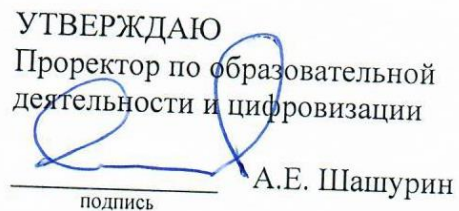 УТВЕРЖДАЮ
Проректор по образовательной
деятельности и цифровизации
А.Е. Шашурин
подпись